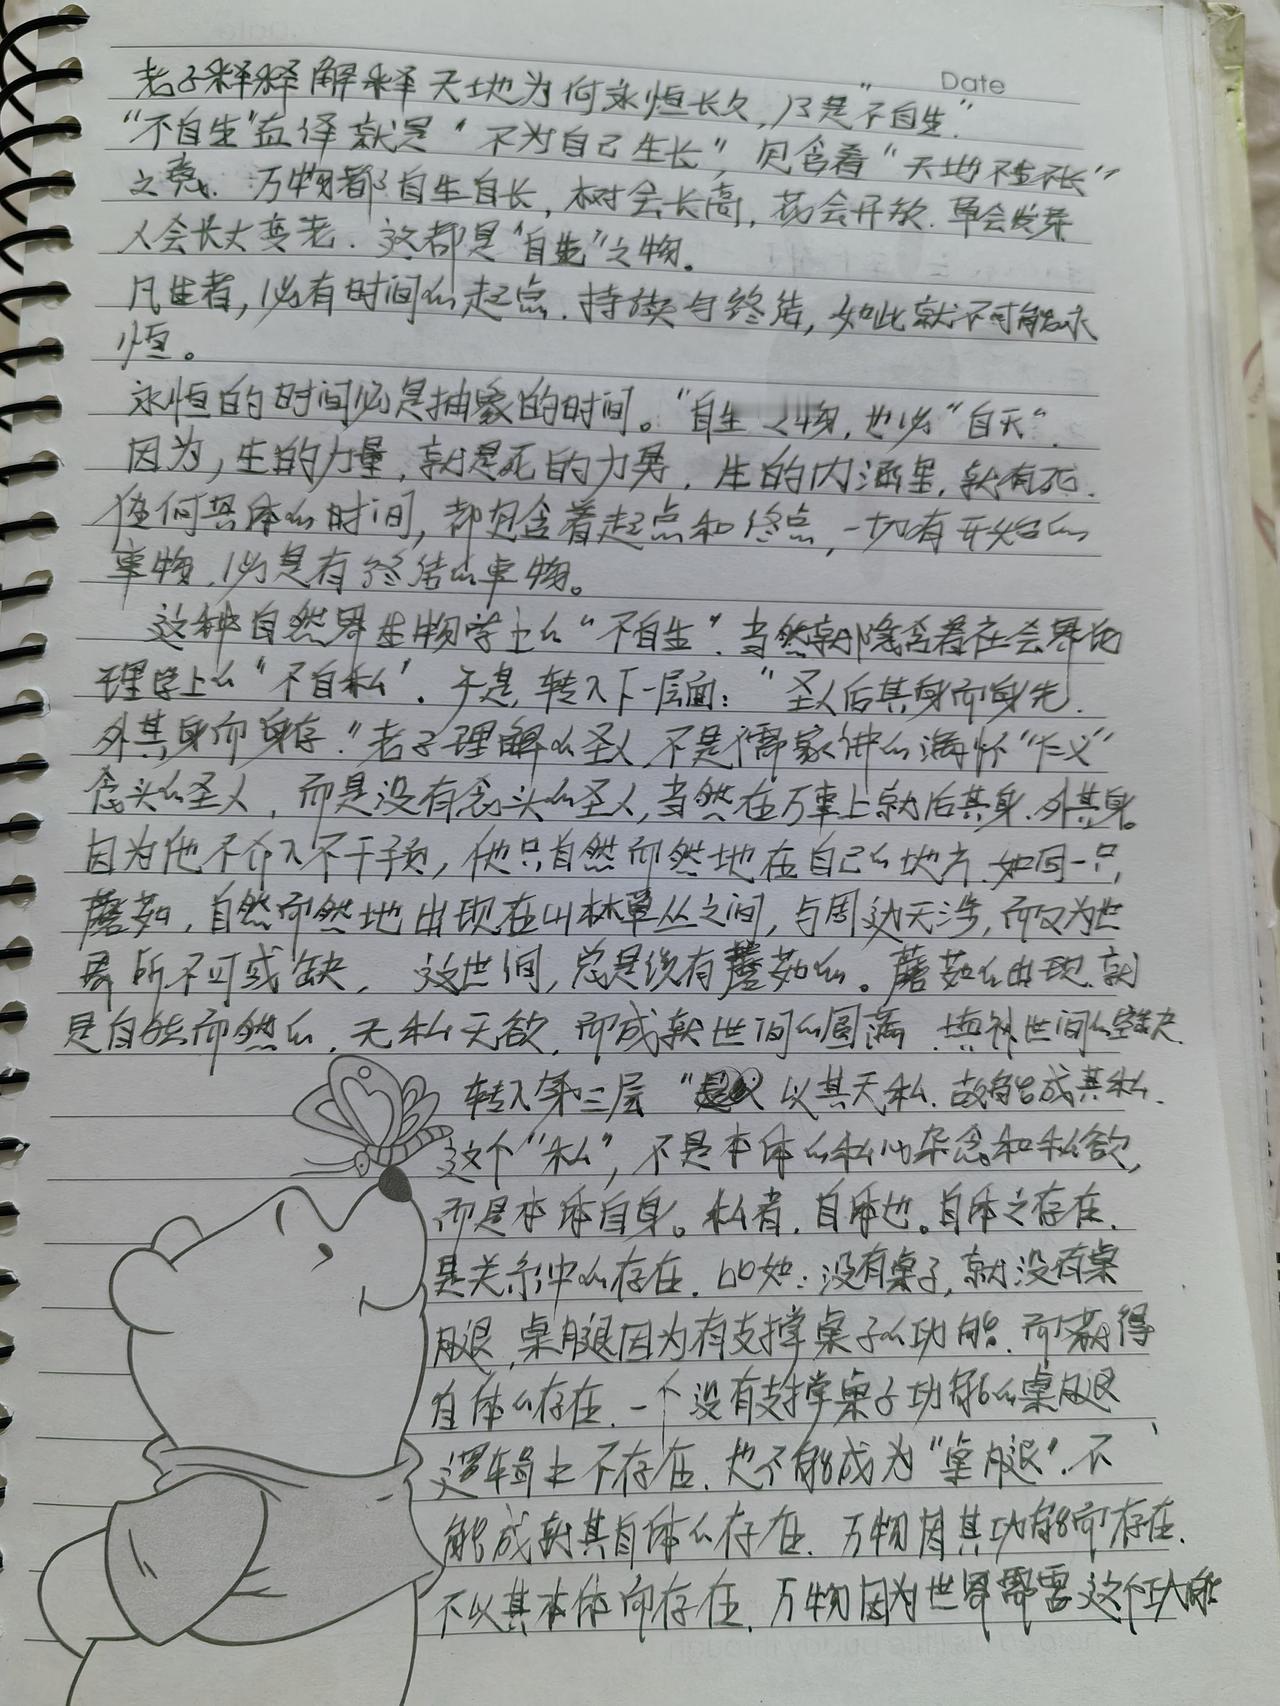 Date
老子释释解释天地为何永恒长久,乃是"不自生"
"不自生"直译就是"不为自己生长",包含着"天地不生不长"
之意.万物都自生自长,树会长高,花会开放.草会发芽
人会长大变老.这都是"自生"之物。
凡生者,必有时间的起点.持续与终结,如此就不可能永
恒。
永恒的时间必是抽象的时间。"自生之物,也必"自灭".
因为,生的力量,就是死的力量,生的内涵里,就有死.
任何具体的时间,都包含着起点和终点,一切有开始的
事物,必是有终结的事物。
这种自然界生物学上的"不自生".当然就隐含着社会界伦
理学上的"不自私".于是,转入下一层面:"圣人后其身而身先.
外其身而身存."老子理解的圣人,不是儒家讲的满怀"仁义"
念头的圣人,而是没有念头的圣人,当然在万事上就后其身.外其身。
因为他不介入不干预,他只自然而然地在自己的地方.如同一只
蘑菇,自然而然地出现在山林草丛之间,与周边无涉,而又为世
界所不可或缺,这世间,总是须有蘑菇的。蘑菇的出现,就
是自然而然的,无私无欲,而成就世间的圆满,填补世间的空缺.
转入第三层"以其无私.故能成其私.
这个"私",不是本体的私心杂念和私欲,
而是本体自身。私者,自体也。自体之存在,
是关系中的存在.比如:没有桌子,就没有桌
腿,桌腿因为有支撑桌子的功能.而获得
自体的存在.一个没有支撑桌子功能的桌腿
逻辑上不存在.也不能成为"桌腿".不
能成就其自体的存在.万物因其功能而存在.
不以其本体而存在.万物因为世界需要这个功能